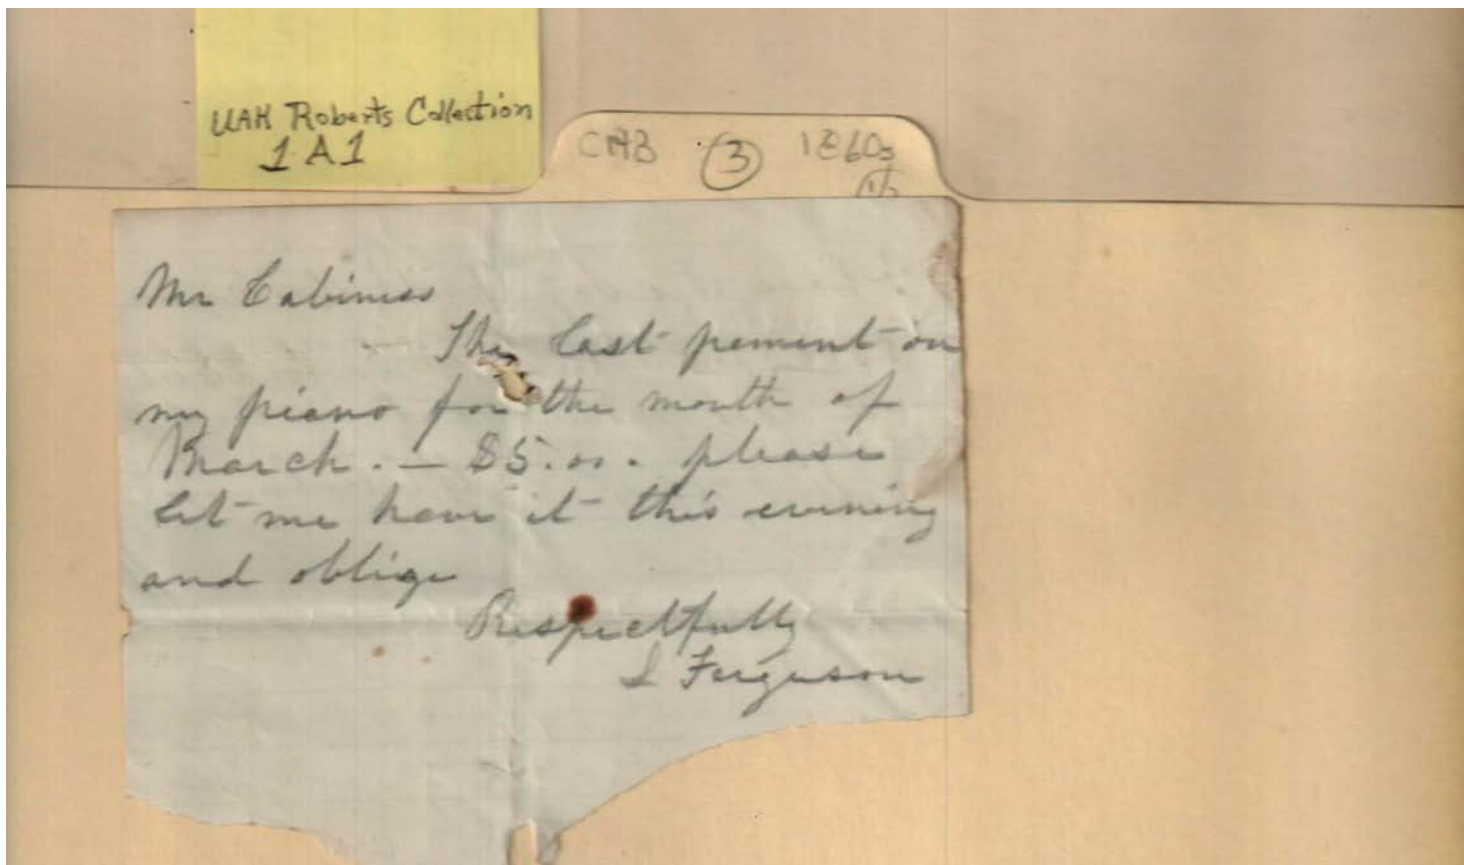 UAH Roberts Collection
1A1
CAB 3 1860s
Mr Cabiness
The last pement on
my piano for the month of
March. — $5.00. please
let me have it this evening
and oblige
Respectfully
Ferguson